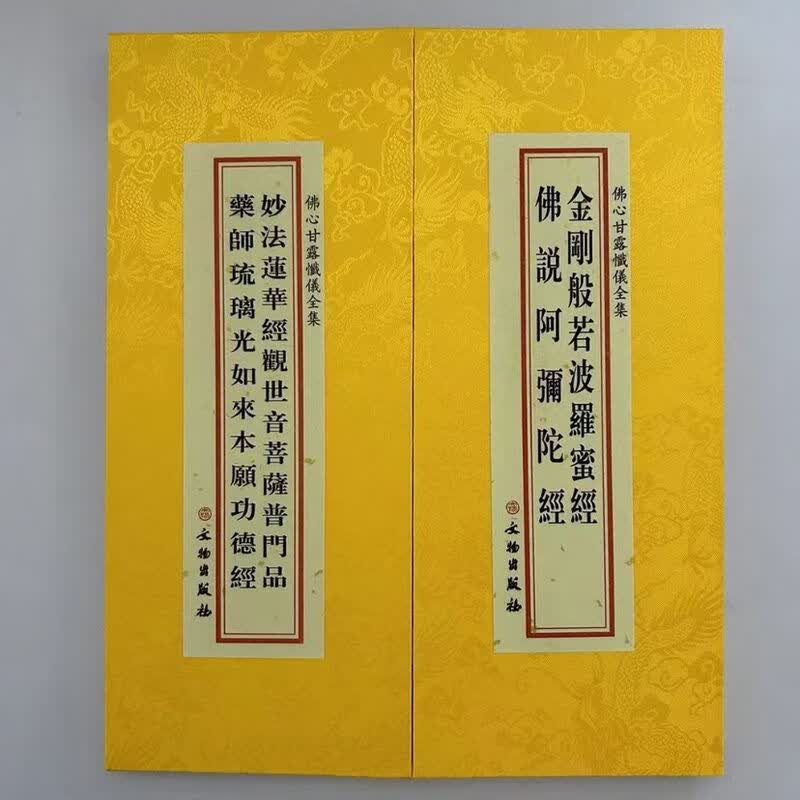 佛心甘露懺儀全集
金剛般若波羅蜜經
佛説阿彌陀經
文物出版社
佛心甘露懺儀全集
妙法蓮華經觀世音菩薩普門品
藥師琉璃光如來本願功德經
文物出版社